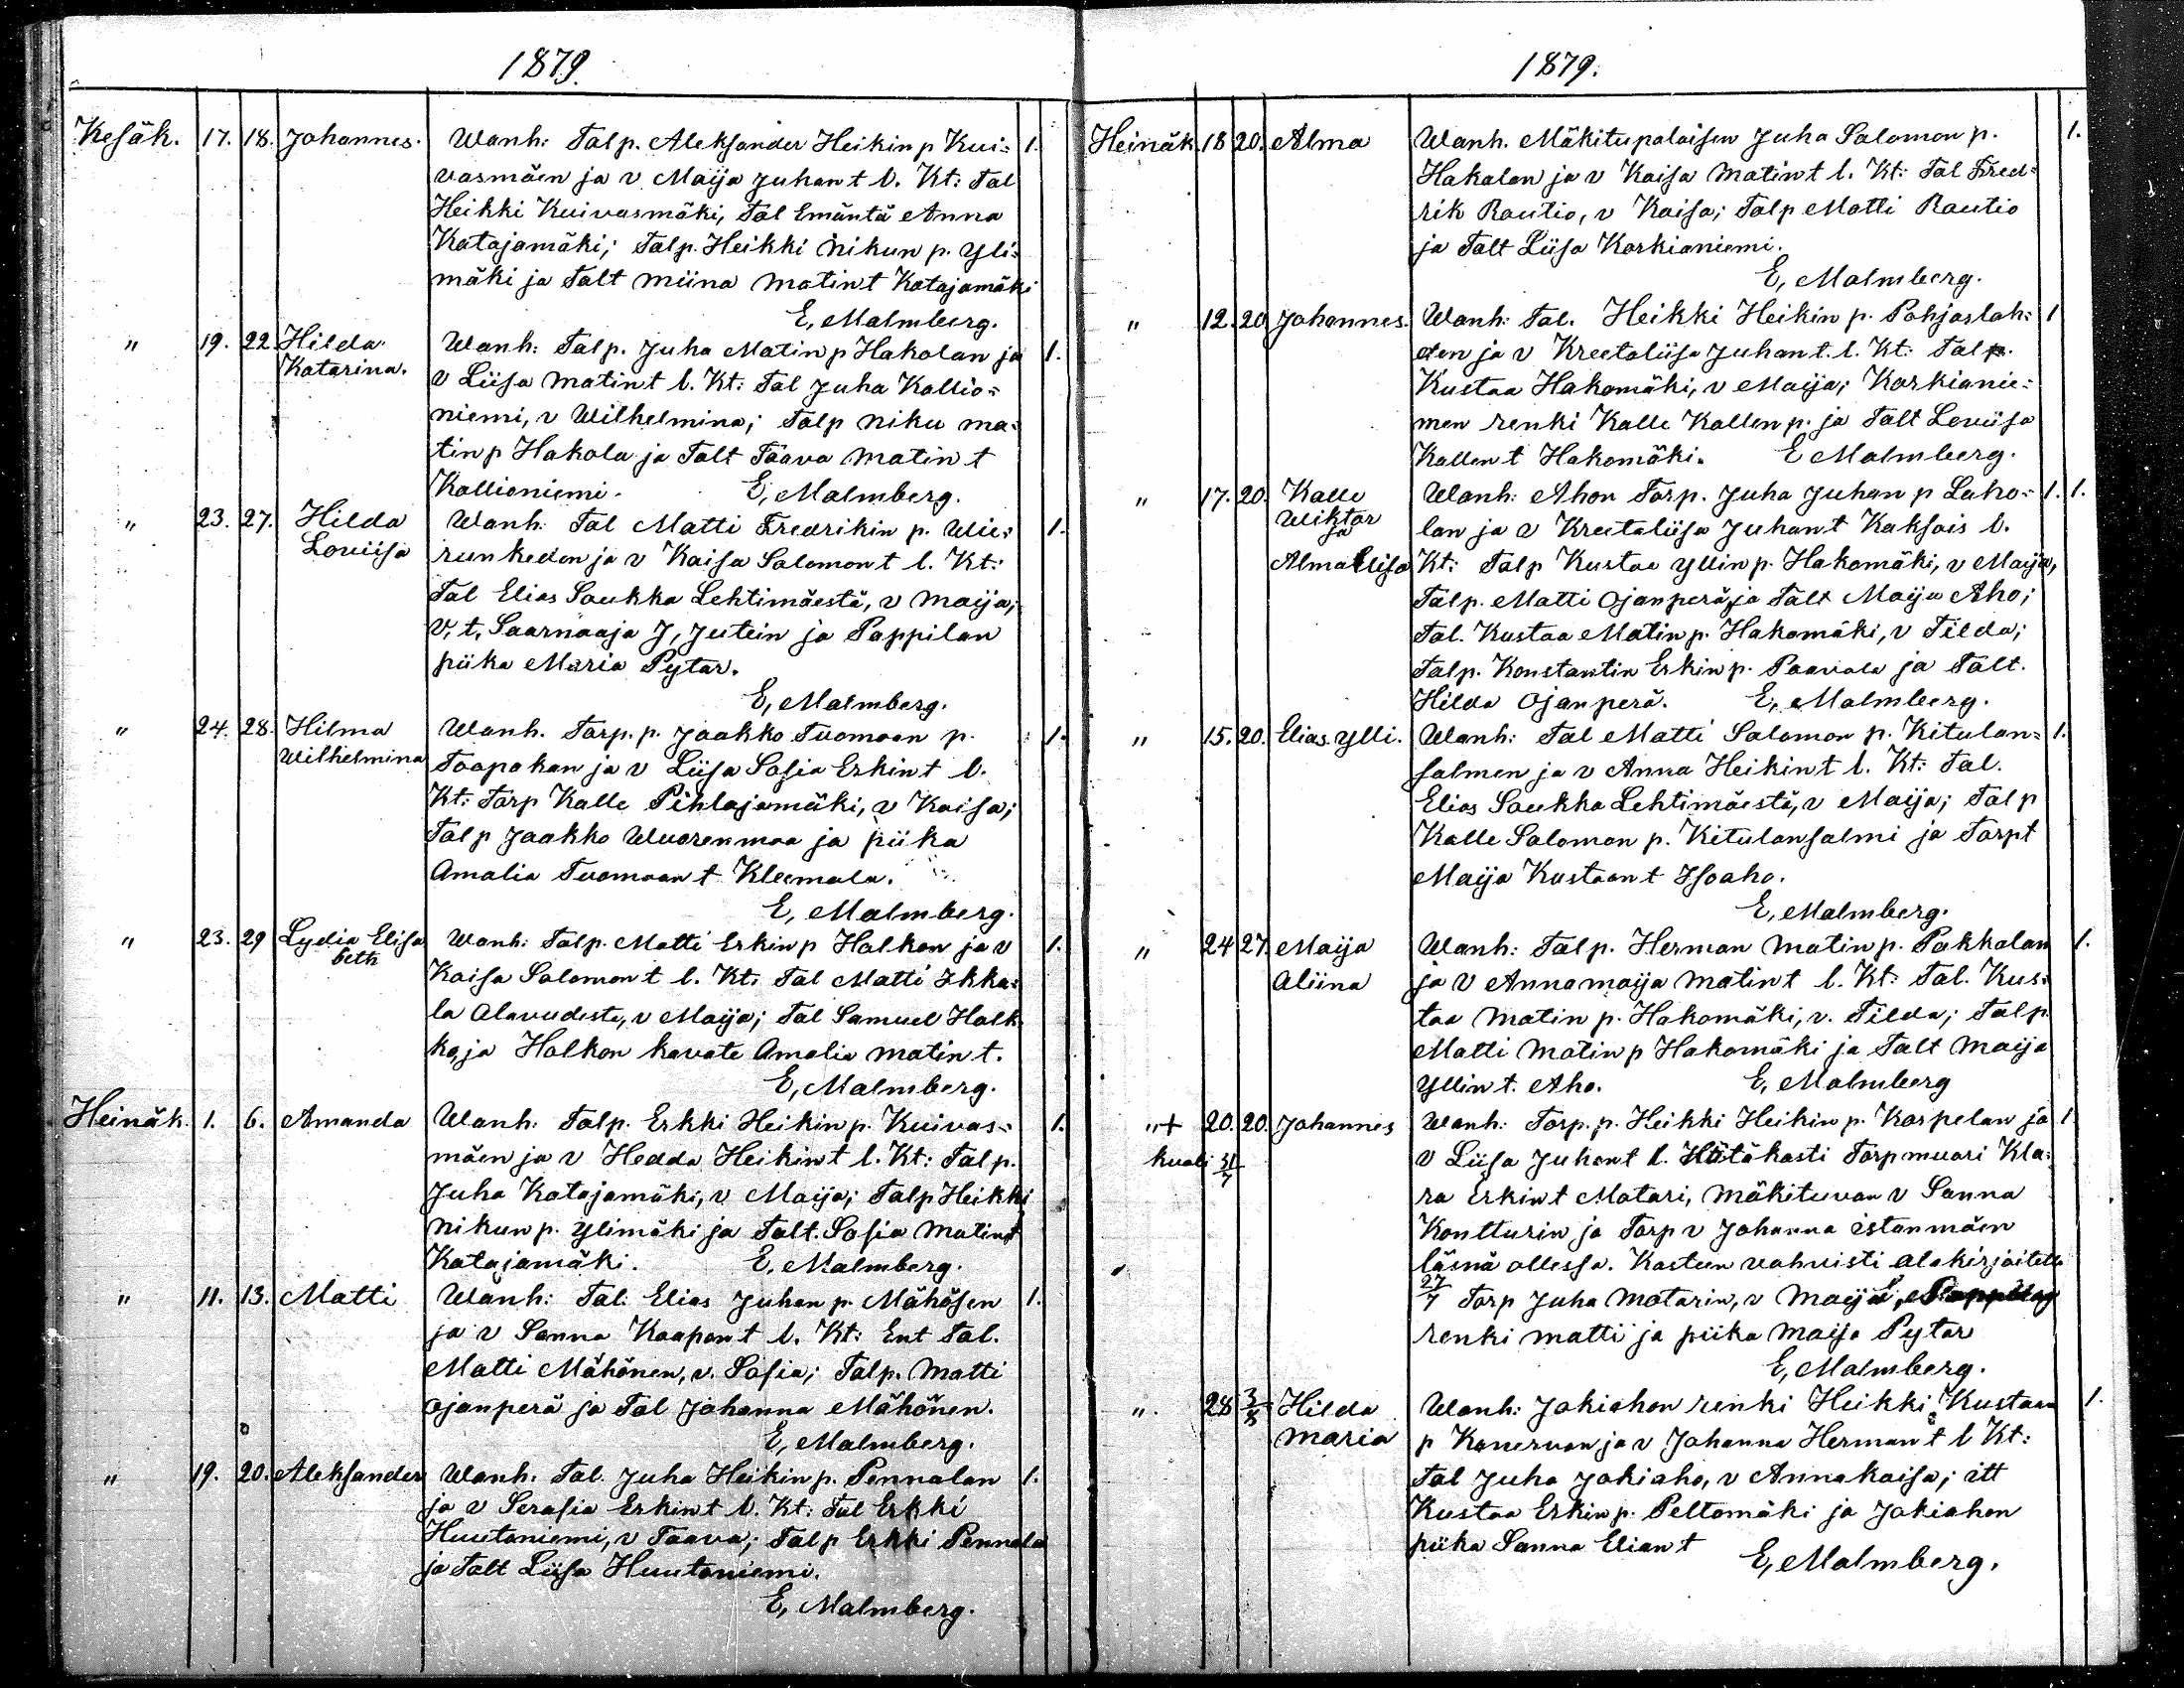 1879.
Kesäk. 17. 18. Johannes. Wanh: Talp. Aleksander Heikin p Kui= 1.
vasmäen ja v Maija Juhan t l. Kt: Tal
Heikki Kuivasmäki, Tal Emäntä Anna
Katajamäki; Talp. Heikki Nikun p. Yli=
mäki ja Talt Miina Matin t Katajamäki
E, Malmberg.
" 19. 22 Hilda Wanh: Talp. Juha Matin p Hakolan ja 1.
Katarina. v Liisa Matin t l. Kt: Tal Juha Kallio=
niemi, v Wilhelmina; Talp Niku Ma=
tin p Hakola ja Talt Taava Matin t
Kallioniemi. E, Malmberg.
" 23. 27. Hilda Wanh: Tal Matti Fredrikin p. Wie= 1.
Loviisa runkedon ja v Kaisa Salomon t l. Kt:
Tal Elias Saukka Lehtimäestä, v Maija;
V, t, Saarnaaja J, Jutein ja Pappilan
piika Maria Pytar.
E, Malmberg.
" 24. 28. Hilma Wanh. Torp. p. Jaakko Tuomaan p. 1.
Wilhelmina Taapakan ja v Liisa Sofia Erkin t l.
Kt: Torp Kalle Pihlajamäki, v Kaisa;
Talp Jaakko Wuorenmaa ja piika
Amalia Tuomaan t Kleemala.
E, Malmberg.
" 23. 29 Lydia Elisa Wanh: Talp. Matti Erkin p Halkon ja v 1.
beth Kaisa Salomon t l. Kt: Tal Matti Ikka=
la Alavudesta, v Maija; Tal Samuel Halk
ko ja Halkon kavate Amalia Matin t.
E, Malmberg.
Heinäk. 1. 6. Amanda Wanh: Talp. Erkki Heikin p. Kuivas= 1.
mäen ja v Hedda Heikin t l. Kt: Talp.
Juha Katajamäki, v Maija; Talp Heikki
Nikun p. Ylimäki ja Talt. Sofia Matin t
Katajamäki. E, Malmberg.
" 11. 13. Matti Wanh: Tal. Elias Juhan p. Mähösen 1.
ja v Sanna Kaapon t l. Kt: Ent Tal.
Matti Mähönen, v. Sofia; Talp. Matti
Ojanperä ja Tal Johanna Mähönen.
E, Malmberg.
" 19. 20. Aleksander Wanh. Tal. Juha Heikin p. Pennalan 1.
ja v Serafia Erkin t l. Kt: Tal Erkki
Huutoniemi, v Taava; Talp Erkki Pennala
ja Talt Liisa Huutoniemi.
E, Malmberg.
1879.
Heinäk 18 20. Alma Wanh. Mäkitupalaisen Juha Salomon p. 1.
Hakalan ja v Kaisa Matin t l. Kt: Tal Fred=
rik Rautio, v Kaisa; Talp Matti Rautio
ja Talt Liisa Korkianiemi.
E, Malmberg.
" 12. 20 Johannes. Wanh: Tal. Heikki Heikin p. Pohjaslah= 1
den ja v Kreetaliisa Juhan t. l. Kt: Talp.
Kustaa Hakomäki, v Maija; Korkianie=
men renki Kalle Kallen p. ja Talt Loviisa
Kallen t Hakomäki. E Malmberg.
" 17. 20. Kalle Wanh: Ahon Torp. Juha Juhan p Laho= 1. 1.
Wiktor lan ja v Kreetaliisa Juhan t Kaksois l.
ja
Alma Elisa Kt: Talp Kustaa Yllin p. Hakomäki, v Maija,
Talp. Matti Ojanperä, ja Talt Maija Aho;
Tal. Kustaa Matin p. Hakomäki, v Tilda;
Talp. Konstantin Erkin p. Paavola ja Talt.
Hilda Ojanperä. E, Malmberg.
" 15. 20. Elias Ylli. Wanh: Tal Matti Salomon p. Kitulan= 1.
salmen ja v Anna Heikin t l. Kt: Tal.
Elias Saukka Lehtimäestä, v Maija; Talp
Kalle Salomon p. Kitulansalmi ja Torpt
Maija Kustaan t Isoaho.
E, Malmberg.
" 24 27. Maija Wanh: Talp. Herman Matin p. Pakkalan 1.
Aliina ja v Annamaija Matin t l. Kt: Tal. Kus=
taa Matin p. Hakomäki, v. Tilda; Talp.
Matti Matin p Hakomäki ja Talt Maija
Yllin t. Aho. E, Malmberg
" + 20. 20. Johannes Wanh: Torp. p. Heikki Heikin p. Karpelan ja 1
kuoli 31/7 v Liisa Juhan t l. Hätäkasti Torpmuori Kla=
ra Erkin t Matari, Mäkituvan v Sanna
Kontturin ja Torp v Johanna istanmäen
läsnä ollessa. Kasteen vahvisti alakirjoitettu
27/7 Torp Juha Matarin, v Maija,
renki Matti ja piika Maija Pytar
E, Malmberg.
" 28 3/8 Hilda Wanh: Jokiahon renki Heikki Kustaan 1.
Maria p Konervan ja v Johanna Herman t l Kt:
Tal Juha Jokiaho, v Annakaisa; itt
Kustaa Erkin p. Peltomäki ja Jokiahon
piika Sanna Elian t E, Malmberg.